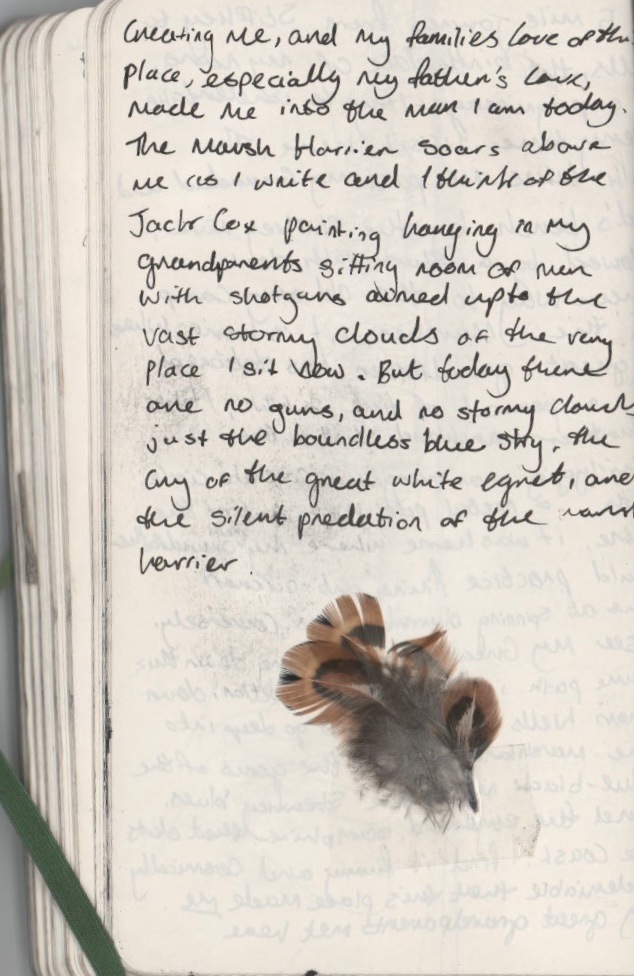 Creating me, and my families love of this
place, especially my father's love,
made me into the man I am today.
The Marsh Harrier soars above
me as I write and I think of the
Jack Cox painting hanging in my
grandparents sitting room of men
with shotguns aimed up to the
vast stormy clouds of the very
place I sit now. But today there
are no guns, and no stormy clouds
just the boundless blue sky, the
cry of the great white egret, and
the silent predation of the marsh
harrier.